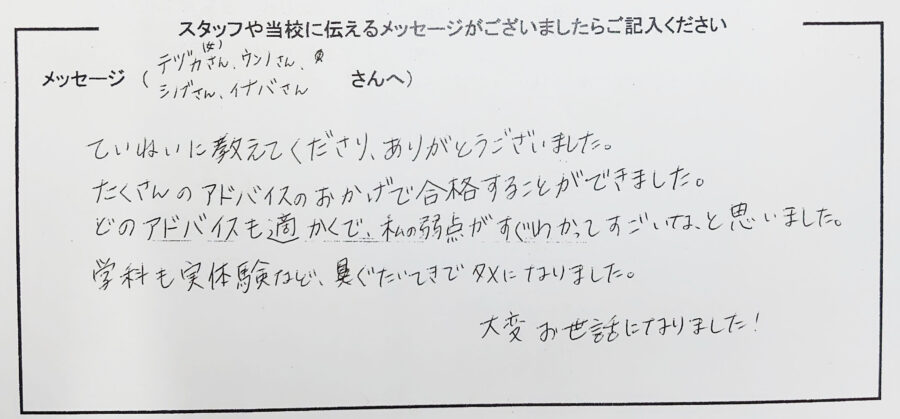 スタッフや当校に伝えるメッセージがございましたらご記入ください
メッセージ (テヅカ(女)さん、ウンノさん、
シノブさん、イナバさん さんへ)
ていねいに教えてくださり、ありがとうございました。
たくさんのアドバイスのおかげで合格することができました。
どのアドバイスも適かくで、私の弱点がすぐわかってすごいな、と思いました。
学科も実体験など、具ぐたいてきでタメになりました。
大変お世話になりました!